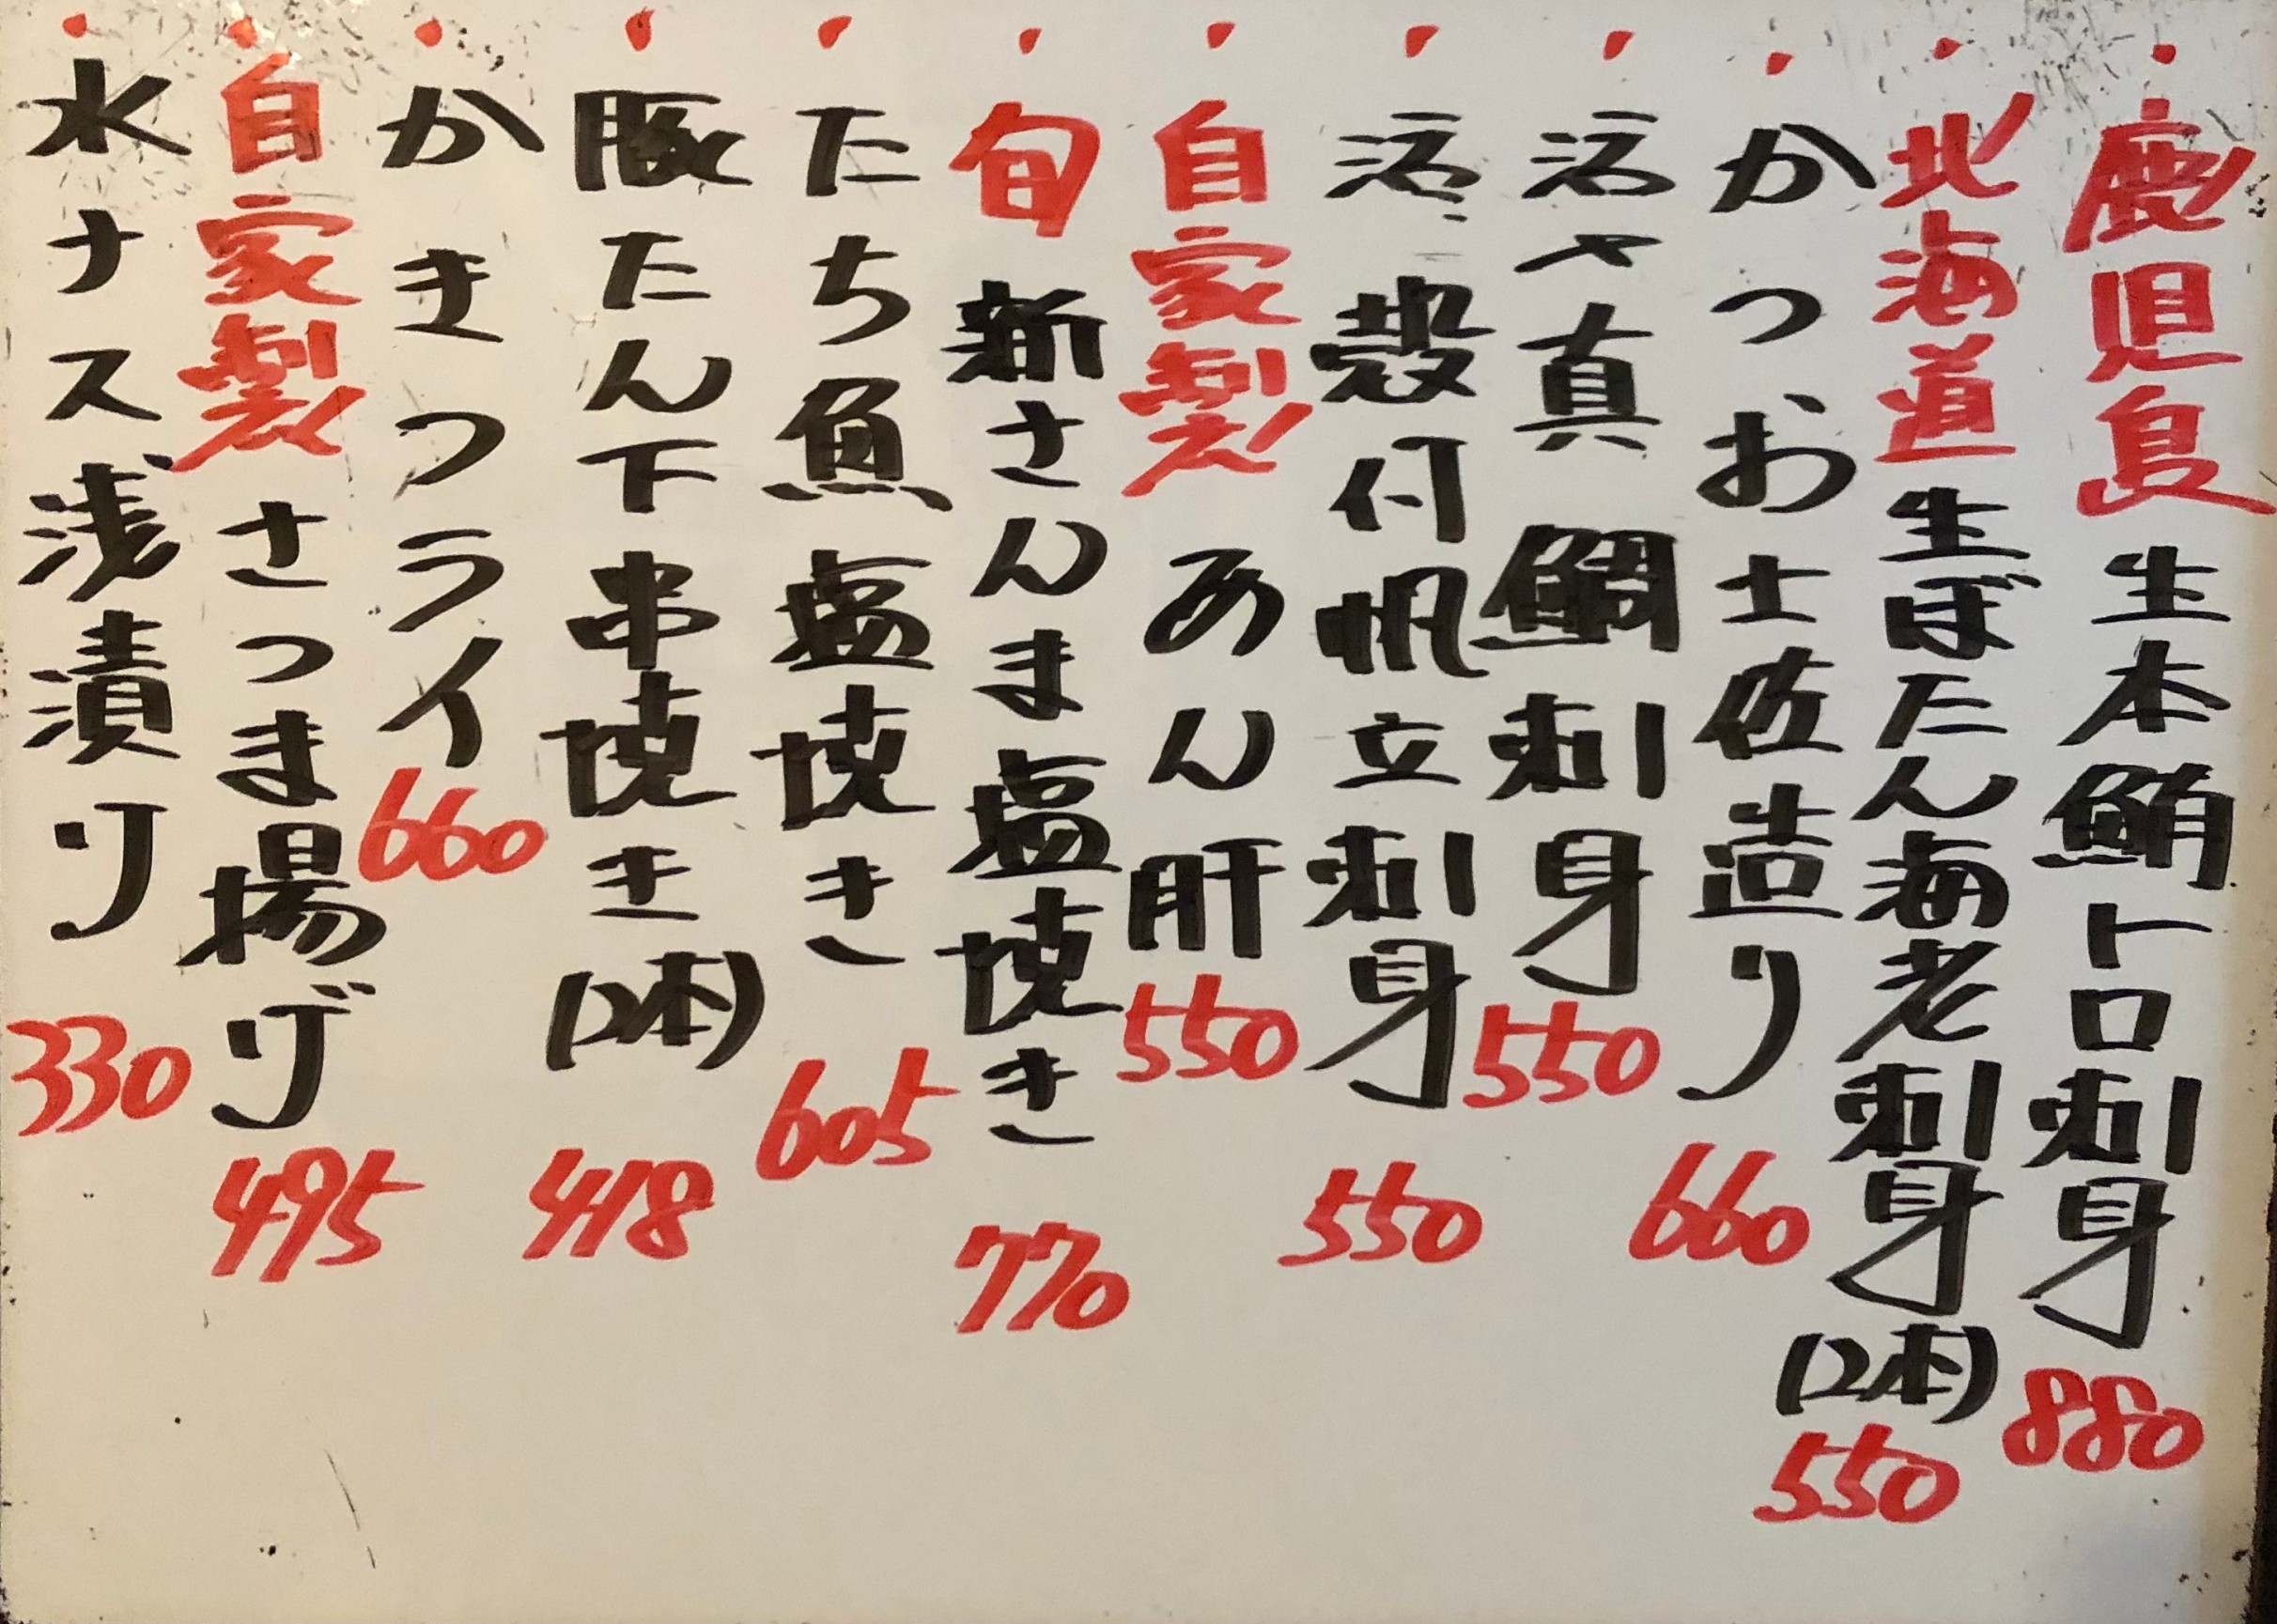 ・鹿児島 生本鮪トロ刺身 880
・北海道 生ぼたん海老刺身 (2本) 550
・かつお土佐造り 660
・活〆真鯛刺身 550
・活〆殻付帆立刺身 550
・自家製 あん肝 550
・旬 新さんま塩焼き 770
・たち魚塩焼き 605
・豚たん下串焼き (2本) 418
・かきフライ 660
・自家製 さつま揚げ 495
・水ナス浅漬り 330